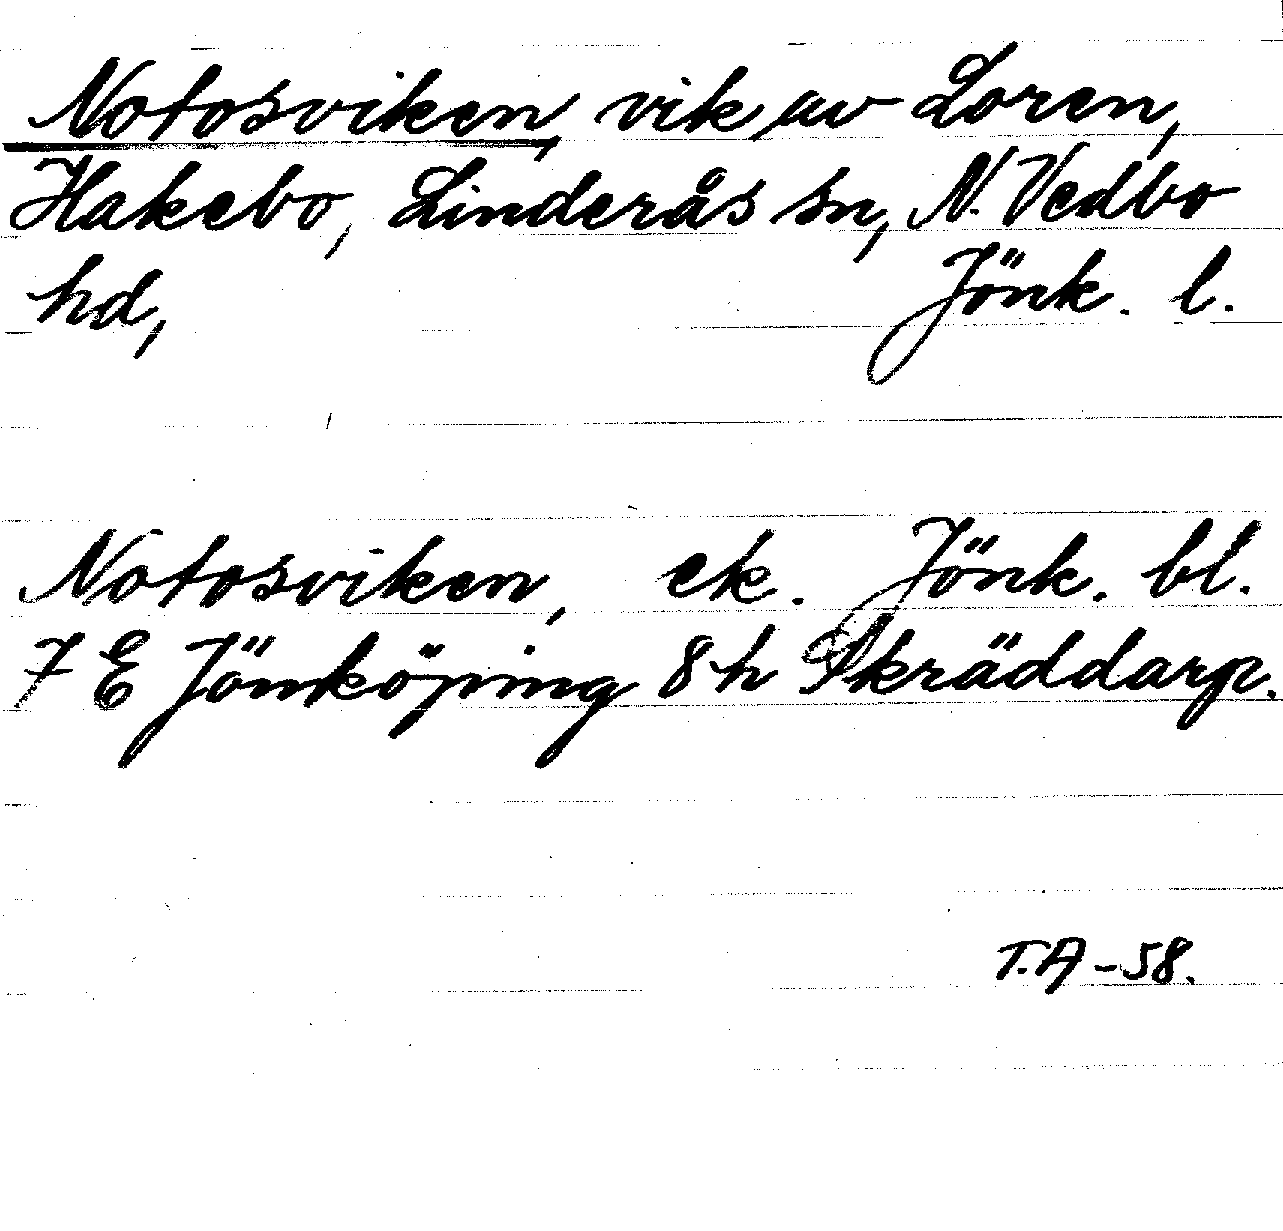 Notosviken, vik av Loren,
Hakebo, Linderås sn, N. Vedbo
hd, Jönk. l.
Notosviken, ek. Jönk. bl.
7 E Jönköping 8 h Skräddarp.
T.A -58.